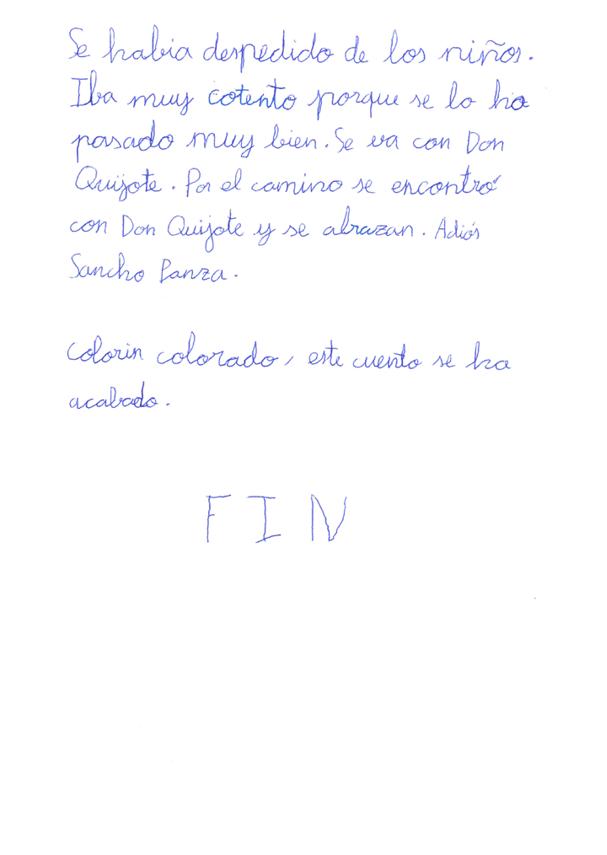 Se habia despedido de los niños.
Iba muy cotento porque se lo ha
pasado muy bien. Se va con Don
Quijote. Por el camino se encontró
con Don Quijote y se abrazan. Adiós
Sancho Panza.
Colorin colorado, este cuento se ha
acabado.
FIN